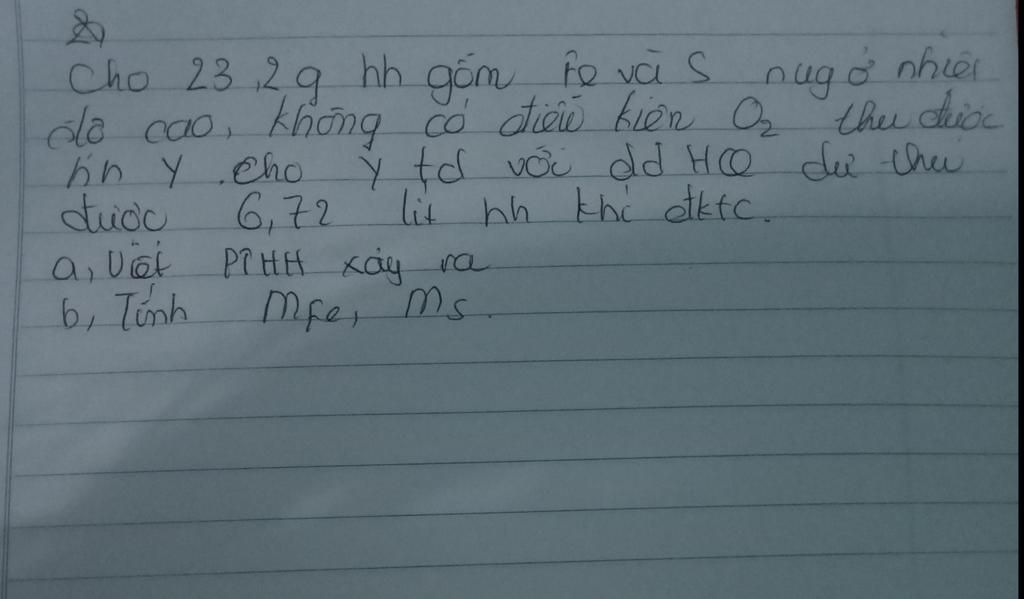 2,
Cho 23,2g hh gồm Fe và S nung ở nhiệt
độ cao, không có điều kiện O2 thu được
hh Y. Cho Y td với dd HCl dư thu
được 6,72 lít hh khí đktc.
a, Viết PTHH xảy ra
b, Tính mFe, mS.